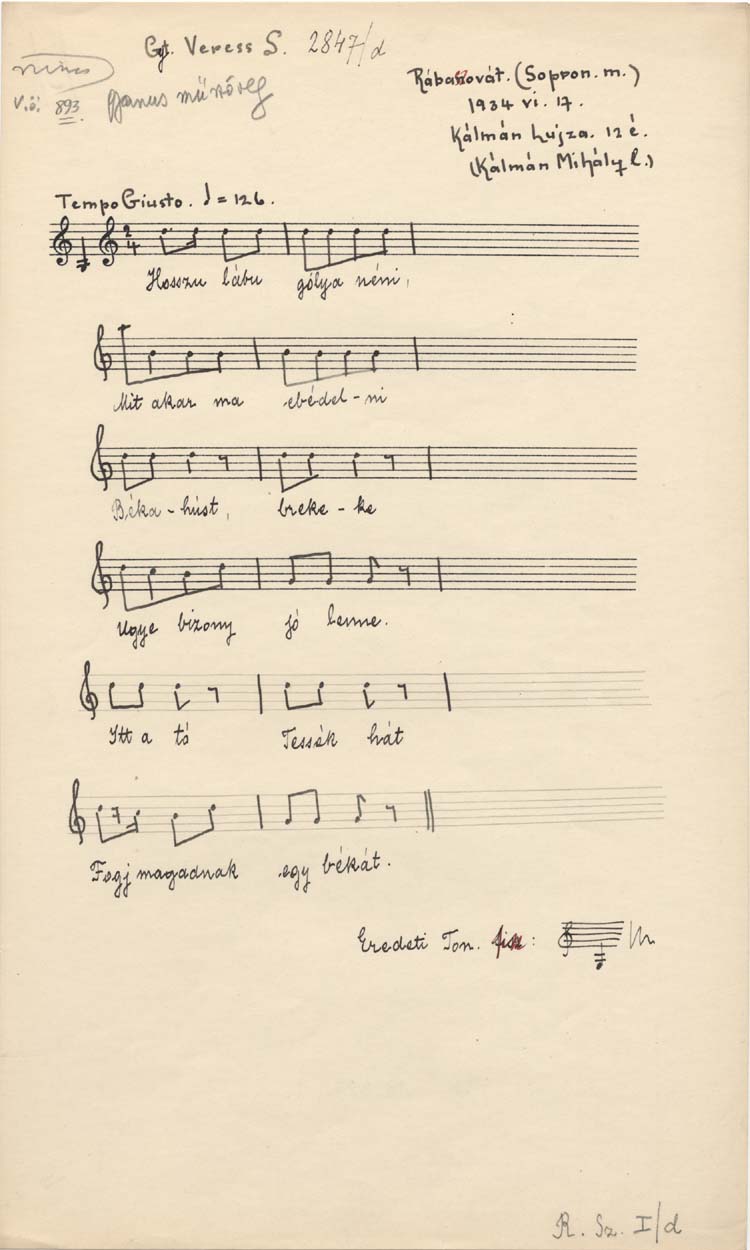 Gy. Veress S. 2847/d
nincs
V.ö. 893.
Rábapovát. (Sopron. m.)
1934 VI. 17.
Kálmán Lujza. 12 é.
(Kálmán Mihály l.)
Tempo Giusto. ♩ = 126.
2/4
Hosszu lábu gólya néni,
Mit akar ma ebédel-ni
Béka-húst, breke-ke
Ugye bizony jó lenne.
Itt a tó Tessék hát
Fogj magadnak egy békát.
Eredeti Ton. fisz:
R. Sz. I/d